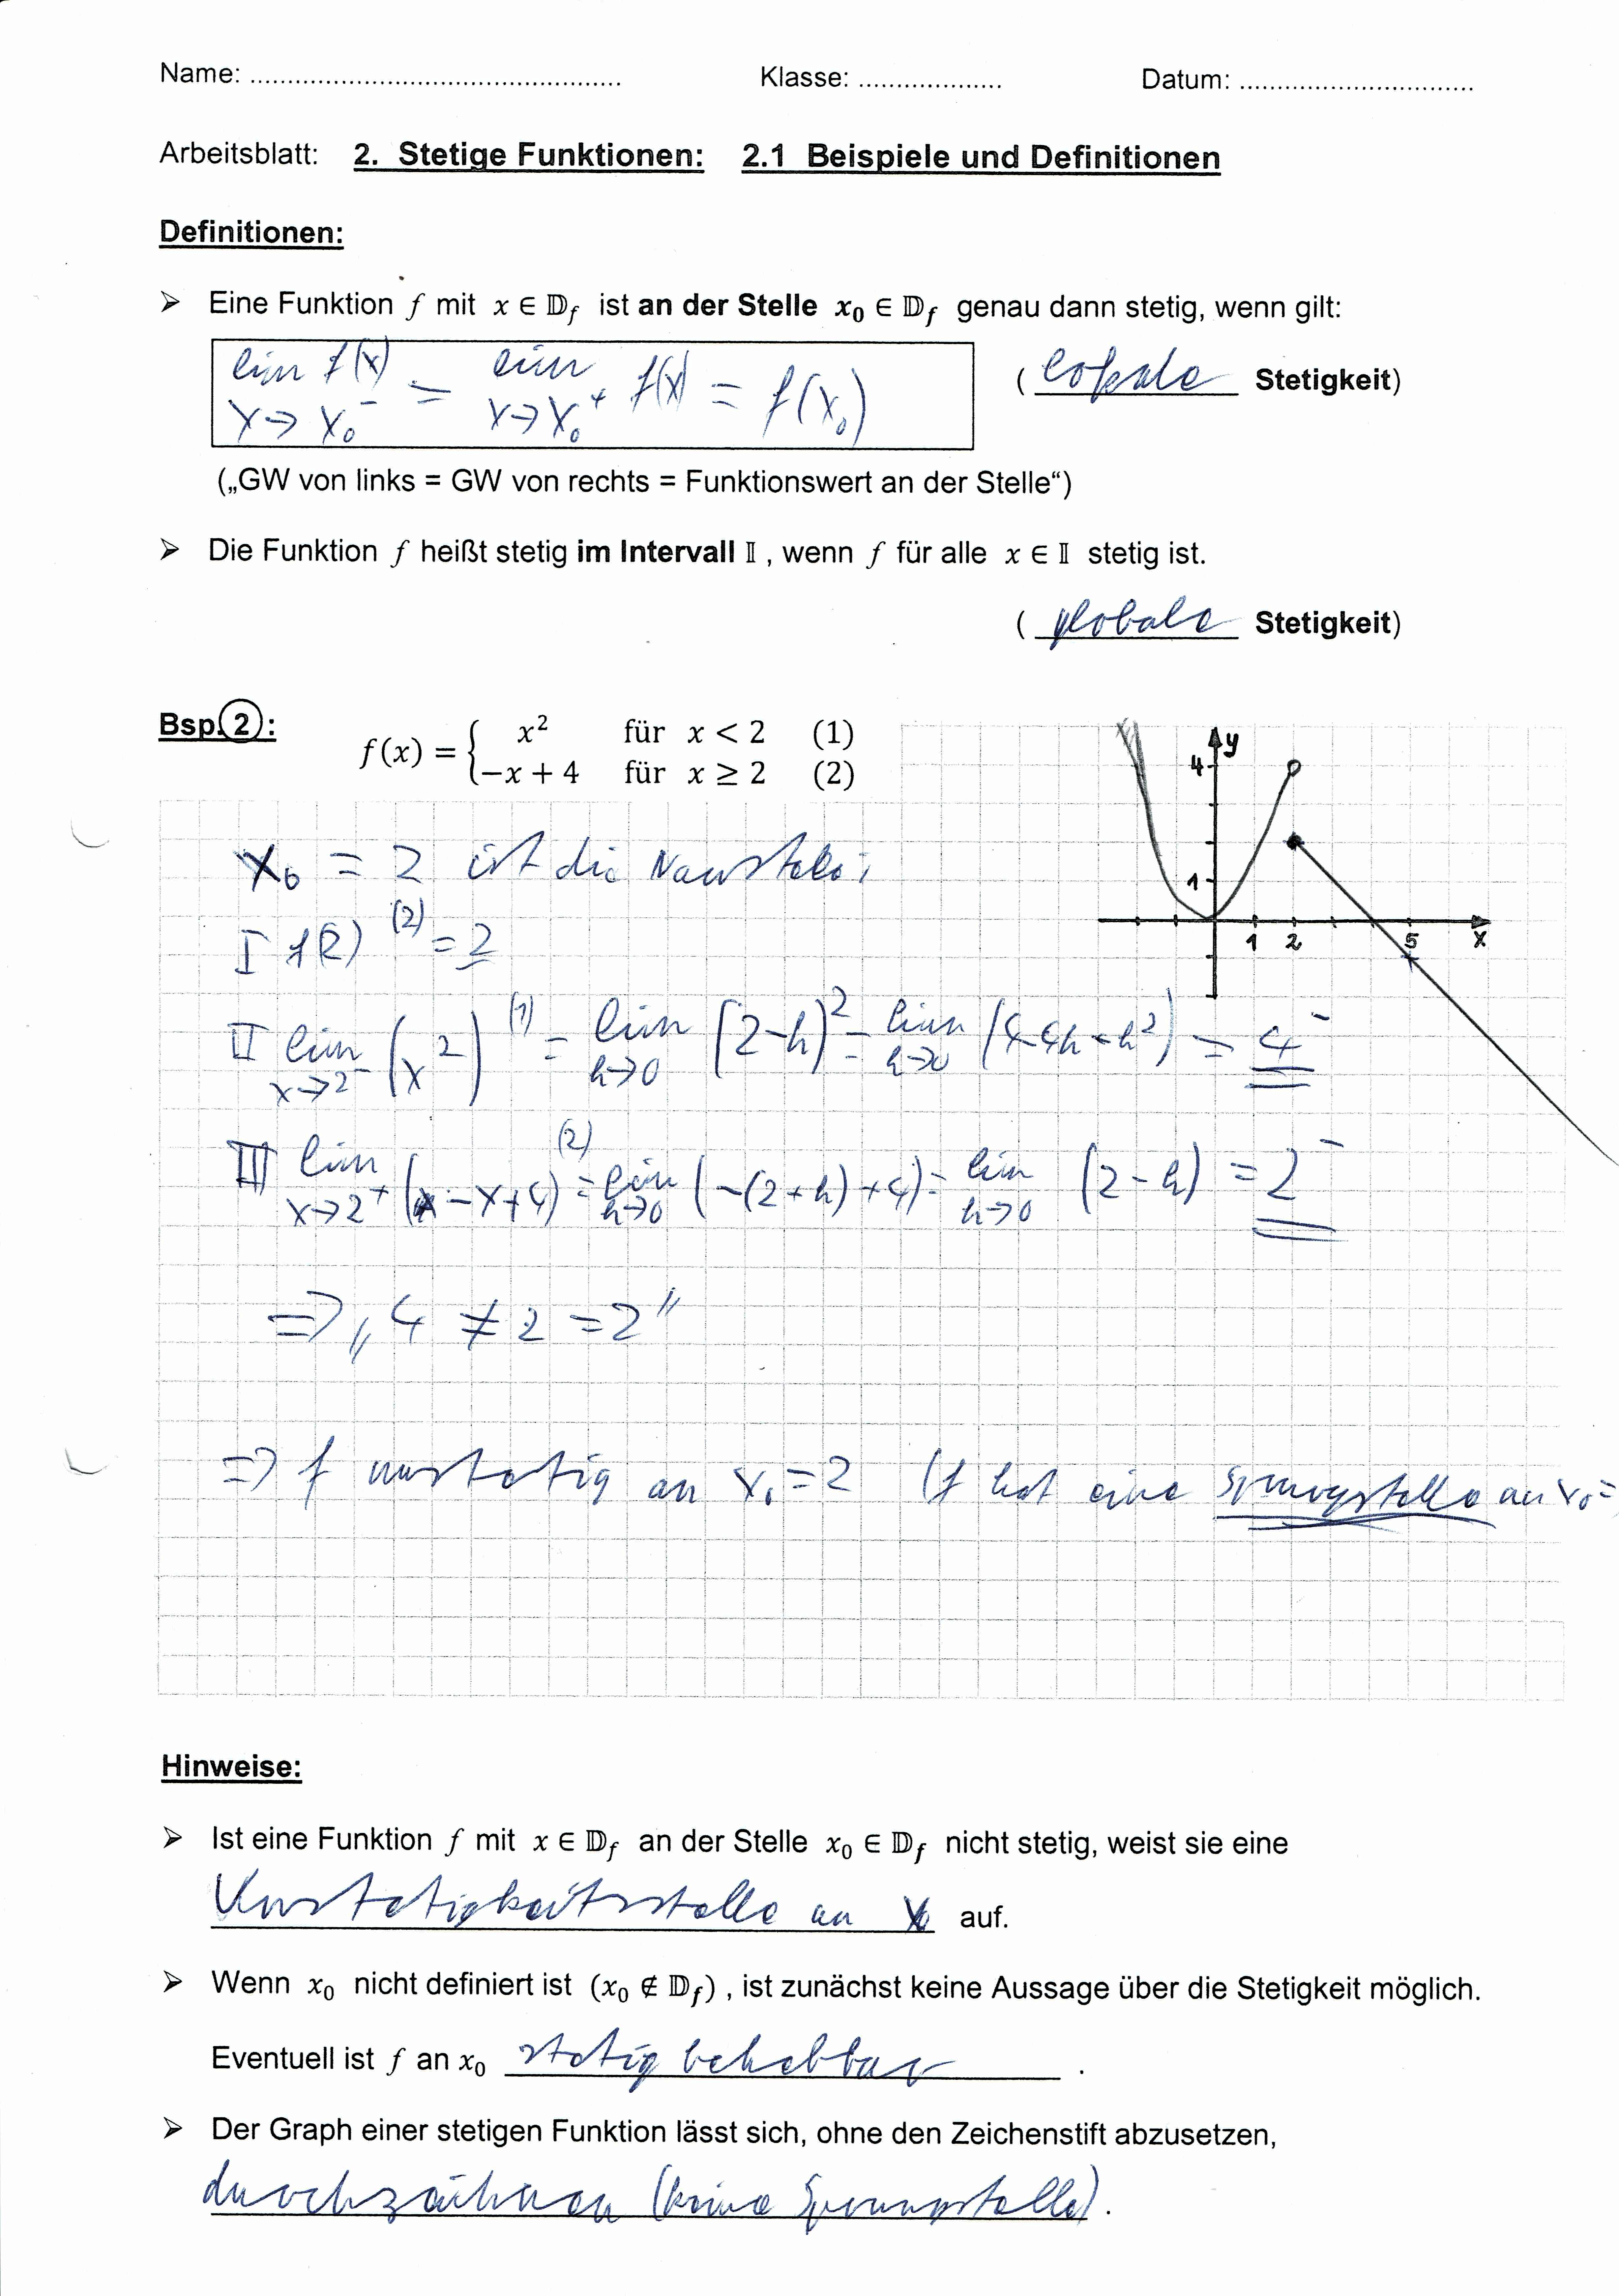 Name: ................................................ Klasse: ................... Datum: ...............................
Arbeitsblatt: 2. Stetige Funktionen: 2.1 Beispiele und Definitionen
Definitionen:
➢ Eine Funktion f mit x ∈ 𝔻f ist an der Stelle x₀ ∈ 𝔻f genau dann stetig, wenn gilt:
lim x→x₀⁻ f(x) = lim x→x₀⁺ f(x) = f(x₀) ( lokale Stetigkeit)
(„GW von links = GW von rechts = Funktionswert an der Stelle“)
➢ Die Funktion f heißt stetig im Intervall 𝕀 , wenn f für alle x ∈ 𝕀 stetig ist.
( globale Stetigkeit)
Bsp. 2 :
f(x) = { x² für x < 2 (1)
−x + 4 für x ≥ 2 (2)
y
4
1
1 2 5 x
x₀ = 2 ist die
I f(2) (2) = 2
II lim x→2⁻ (x²) (1) = lim h→0 (2−h)² = lim h→0 (4−4h+h²) = 4⁻
III lim x→2⁺ (−x+4) (2) = lim h→0 (−(2+h)+4) = lim h→0 (2−h) = 2⁻
⇒ „4 ≠ 2 = 2“
⇒ f unstetig an x₀ = 2 (f hat eine Sprungstelle an x₀ =
Hinweise:
➢ Ist eine Funktion f mit x ∈ 𝔻f an der Stelle x₀ ∈ 𝔻f nicht stetig, weist sie eine
Unstetigkeitsstelle an x₀ auf.
➢ Wenn x₀ nicht definiert ist (x₀ ∉ 𝔻f) , ist zunächst keine Aussage über die Stetigkeit möglich.
Eventuell ist f an x₀ stetig behebbar .
➢ Der Graph einer stetigen Funktion lässt sich, ohne den Zeichenstift abzusetzen,
(keine Sprungstelle).